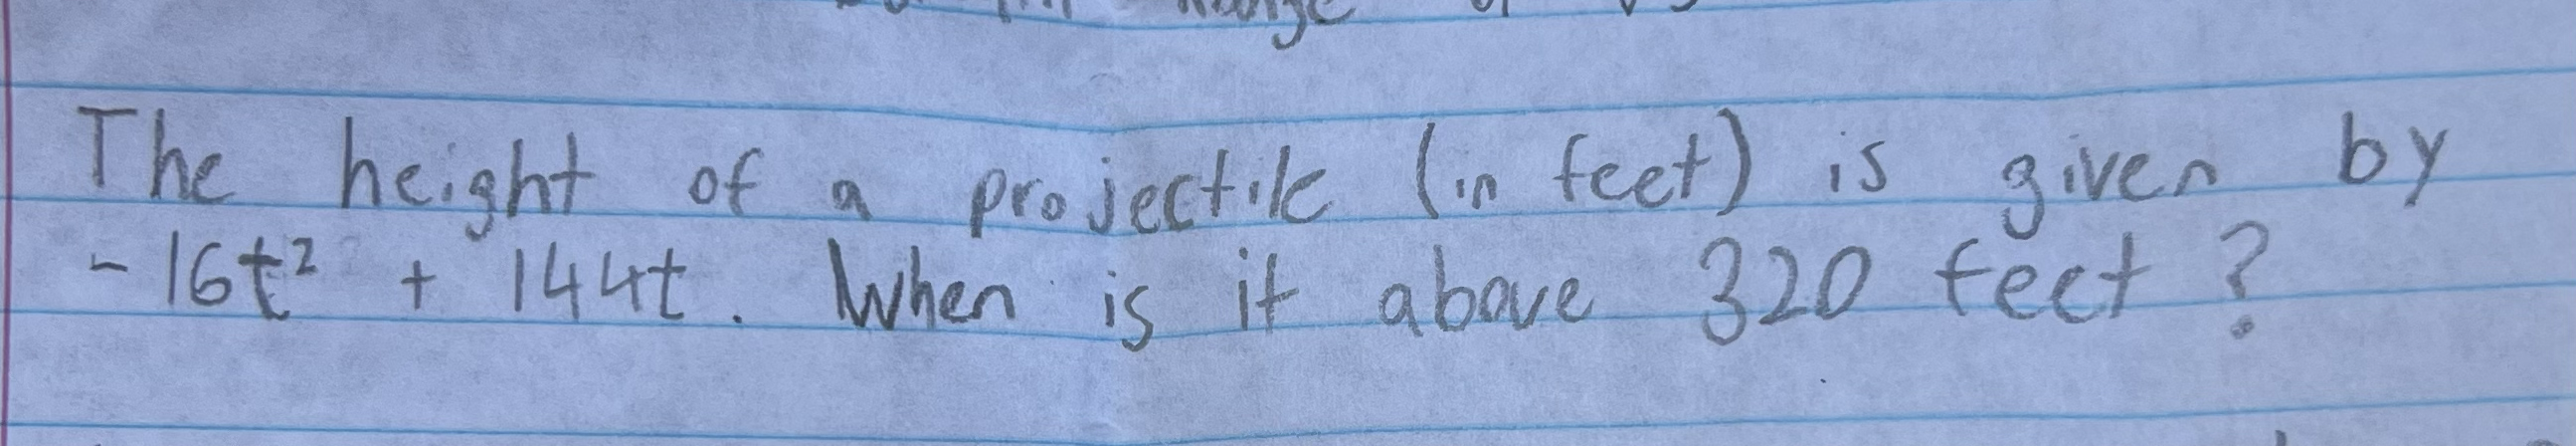 The height of a projectile (in feet) is given by
-16t² + 144t. When is it above 320 feet?